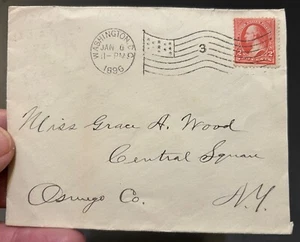 WASHINGTON, D.C.
JAN 6
1896
3
Miss Grace A. Wood
Central Square
Oswego Co. N.Y.